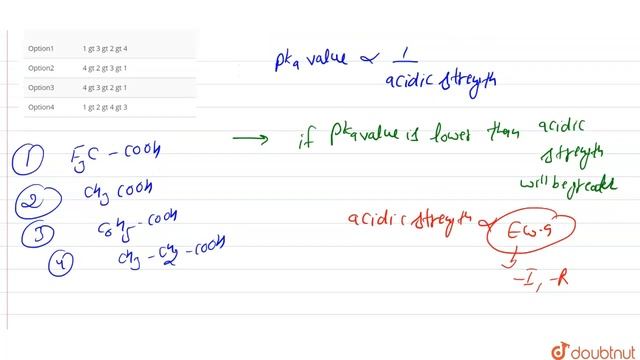 Option1 1 gt 3 gt 2 gt 4
Option2 4 gt 2 gt 3 gt 1
Option3 4 gt 3 gt 2 gt 1
Option4 1 gt 2 gt 4 gt 3
pka value ∝ 1 / acidic strength
→ if Pka value is lower then acidic
strength
will be greater
① F3C - COOH
② CH3 COOH
③ C6H5 - COOH
④ CH3 - CH2 - COOH
acidic strength ∝ EWG
-I, -R
doubtnut